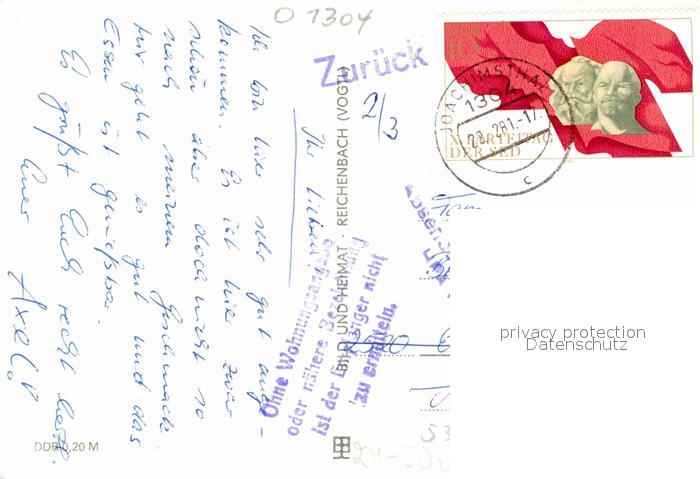 O 1304
Zurück
2/3
Ihr Lieben!
Ich bin hier sehr gut ange-
kommen. Es ist hier zwar
schön aber doch nicht so
nach meinem Geschmack.
Mir geht es gut und das
Essen ist genießbar.
Es grüßt Euch recht herzl.
Euer Axel!
DDR 0,20 M
BILD UND HEIMAT · REICHENBACH (VOGTL)
Ohne Wohnungsangabe
oder nähere Bezeichnung
ist der Empfänger nicht
zu ermitteln.
10
X. PARTEITAG
DER SED
JOACHIMSTHAL
1304
C
privacy protection
Datenschutz